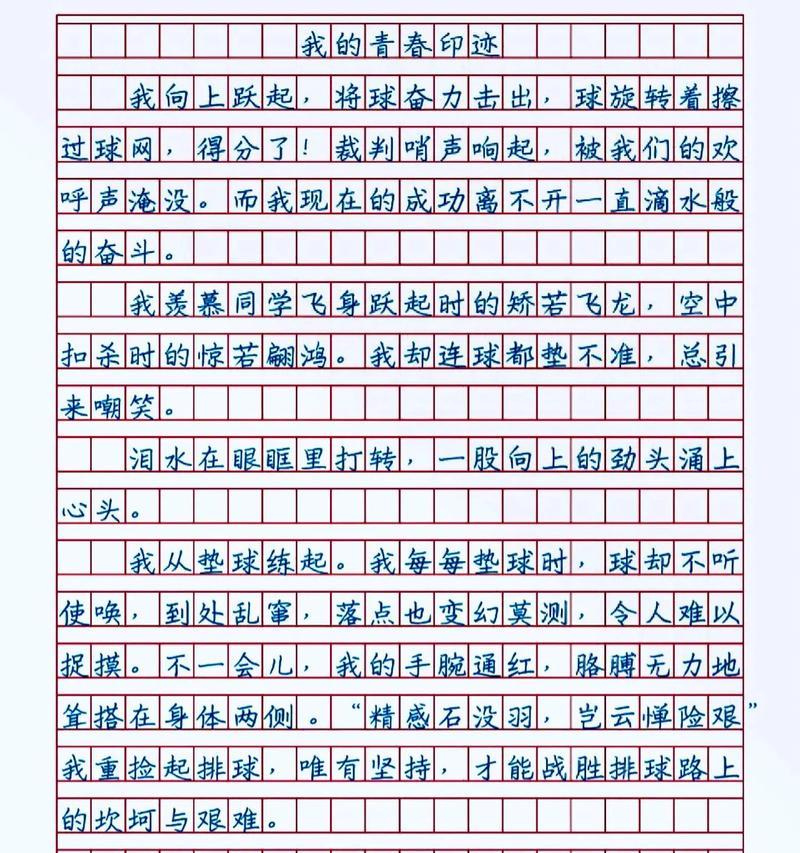 我的青春印迹
我向上跃起，将球奋力击出，球旋转着擦
过球网，得分了！裁判哨声响起，被我们的欢
呼声淹没。而我现在的成功离不开一直滴水般
的奋斗。
我羡慕同学飞身跃起时的矫若飞龙，空中
扣杀时的惊若翩鸿。我却连球都垫不准，总引
来嘲笑。
泪水在眼眶里打转，一股向上的劲头涌上
心头。
我从垫球练起。我每每垫球时，球却不听
使唤，到处乱窜，落点也变幻莫测，令人难以
捉摸。不一会儿，我的手腕通红，胳膊无力地
耸搭在身体两侧。“精感石没羽，岂云惮险艰”
我重捡起排球，唯有坚持，才能战胜排球路上
的坎坷与艰难。